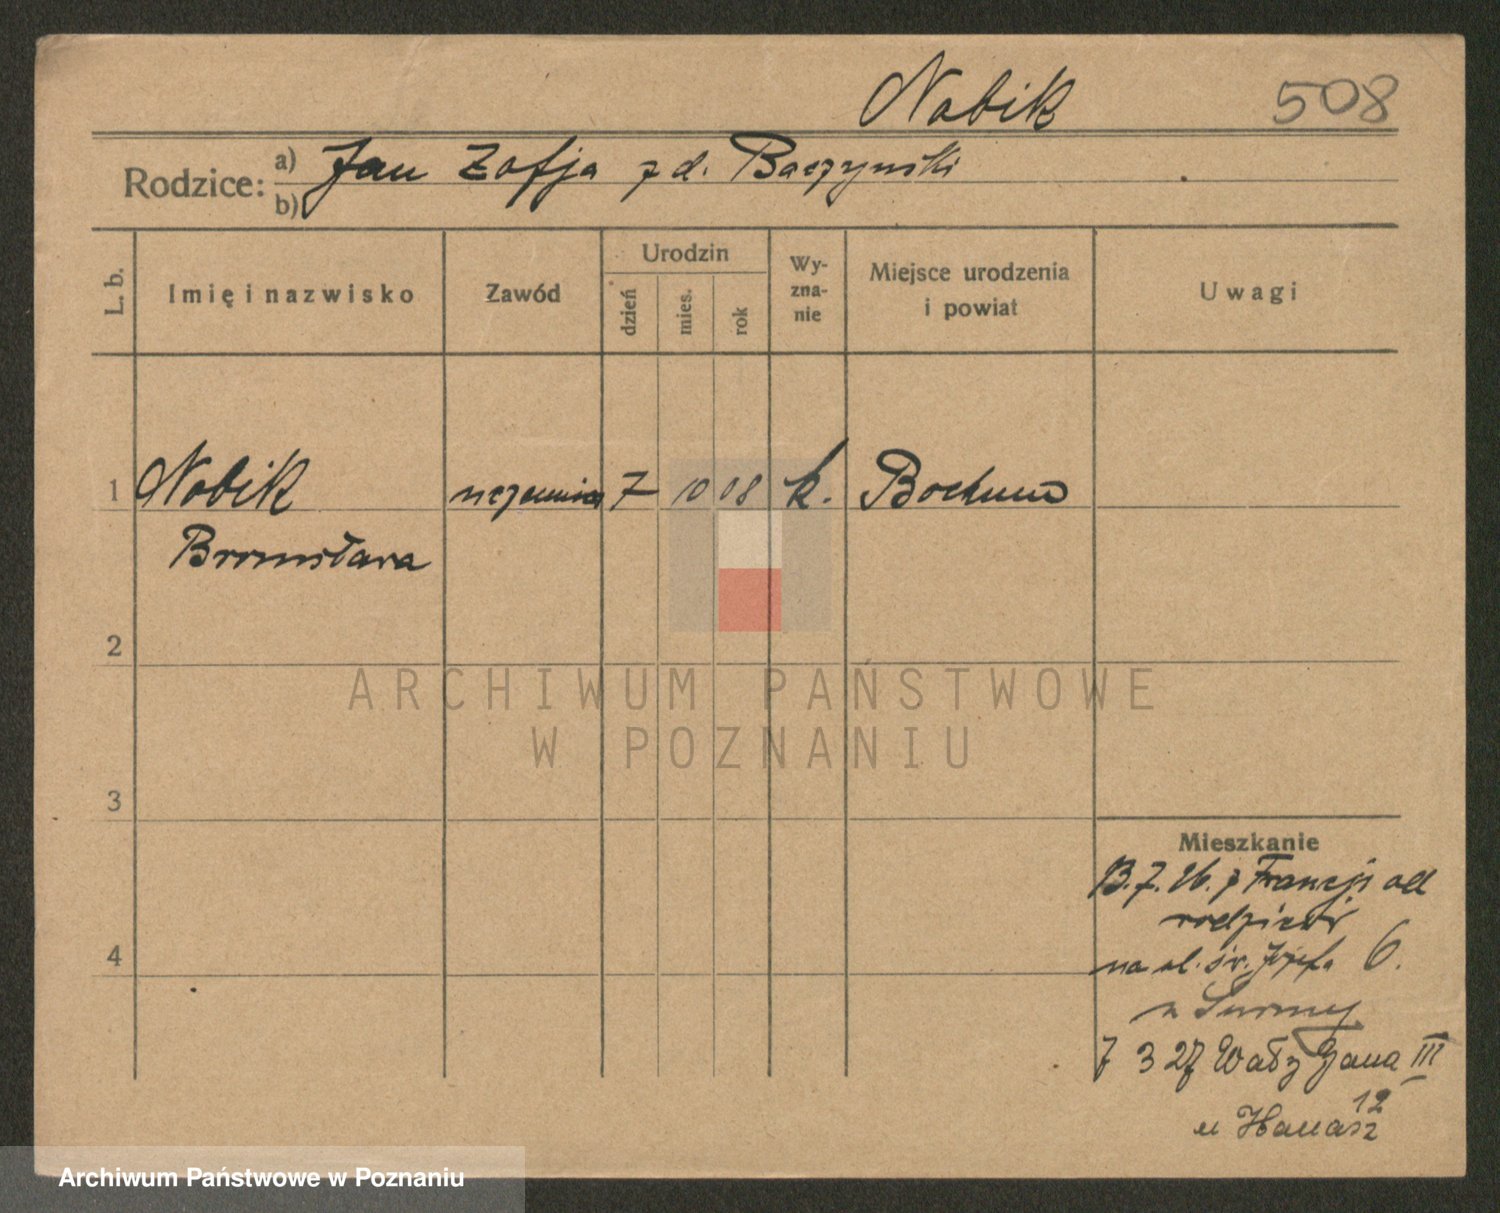 Nobik 508
Rodzice: a) Jan Zofja z d. Baczynski
b)
L. b. Imię i nazwisko Zawód Urodzin dzień mies. rok Wy-zna-nie Miejsce urodzenia i powiat Uwagi
1 Nobik uczennica 7 10 08 k. Bochum
Bronisława
2
ARCHIWUM PAŃSTWOWE
W POZNANIU
3
Mieszkanie
13.7.26. z Francji od
rodziców
4
na ul. św. Józefa 6.
u
7 3 27 Wały Jana III
12
u Hanasz
Archiwum Państwowe w Poznaniu